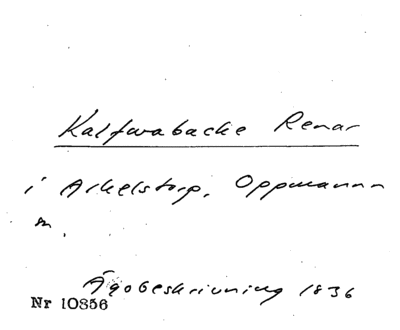 Kalfwabacke Renar
i Arkelstorp, Oppmanna
m.
Ägobeskrivning 1836
Nr 10856